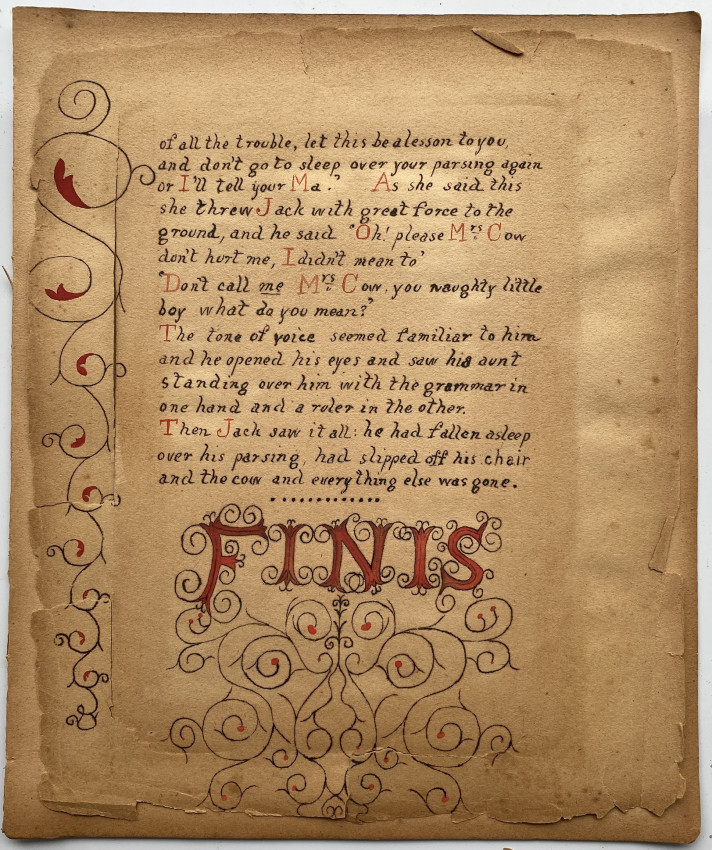 of all the trouble, let this be a lesson to you,
and don't go to sleep over your parsing again
or I'll tell your Ma." As she said this
she threw Jack with great force to the
ground, and he said "Oh! please Mrs. Cow
don't hurt me, I didn't mean to"
"Don't call me Mrs. Cow, you naughty little
boy what do you mean?"
The tone of voice seemed familiar to him
and he opened his eyes and saw his aunt
standing over him with the grammar in
one hand and a ruler in the other.
Then Jack saw it all: he had fallen asleep
over his parsing, had slipped off his chair
and the cow and everything else was gone.
FINIS